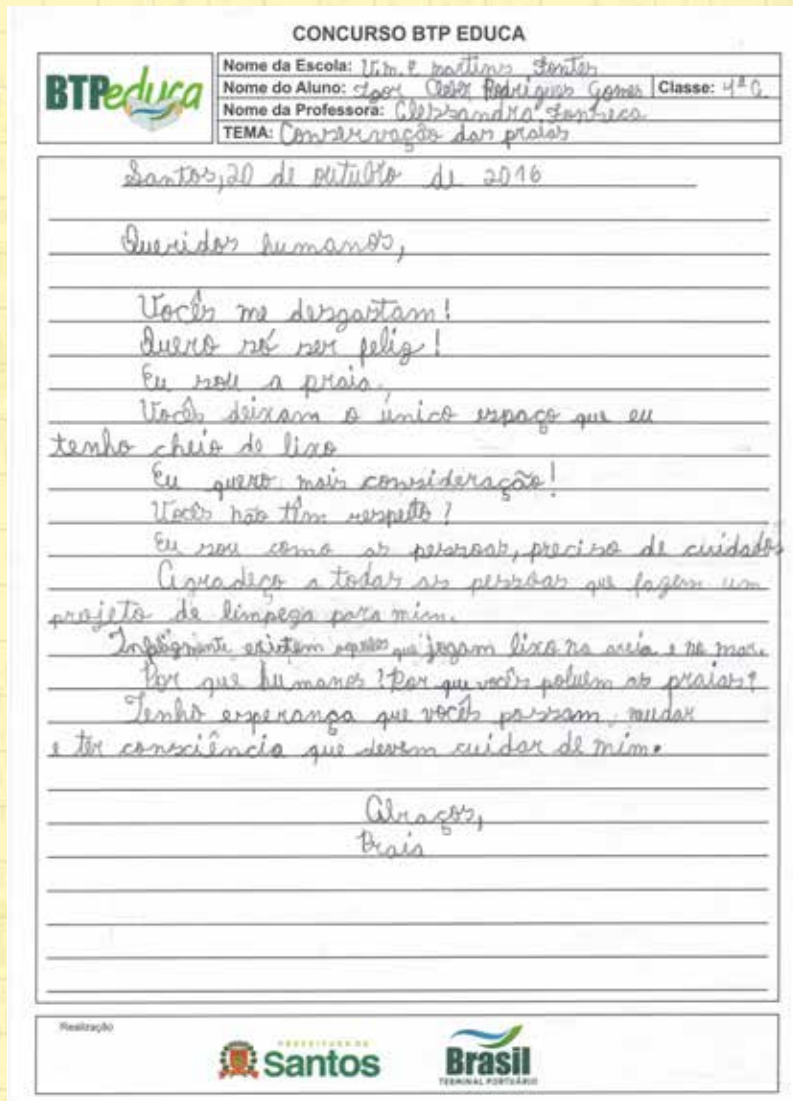 CONCURSO BTP EDUCA
BTPeduca
Nome da Escola: U.m.e martins Fontes
Nome do Aluno: Igor Cleber Rodrigues Gomes Classe: 4ª
Nome da Professora: Fonseca
TEMA: Conservação das praias
Santos, 20 de outubro de 2016
Queridos humanos,
Vocês me desgastam!
Quero só ser feliz!
Eu sou a praia.
Vocês deixam o único espaço que eu
tenho cheio de lixo
Eu quero mais consideração!
Vocês não têm respeito?
Eu sou como as pessoas, preciso de cuidados
Agradeço a todas as pessoas que fazem um
projeto de limpeza para mim.
Infelizmente existem aqueles que jogam lixo na areia e no mar.
Por que humanos? Por que vocês poluem as praias?
Tenho esperança que vocês possam mudar
e ter consciência que devem cuidar de mim.
Abraços,
Praia
Realização
PREFEITURA DE
Santos
Brasil
TERMINAL PORTUÁRIO